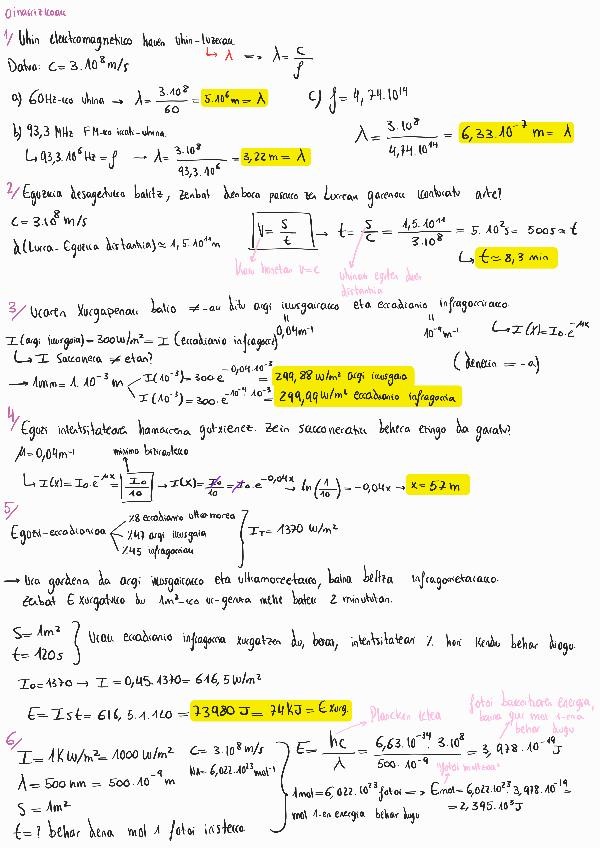 Oinarrizkoak
1/ Uhin elektromagnetiko hauen uhin-luzerau
↳ λ => λ = c/f
Datua: c = 3·10⁸ m/s
a) 60Hz-ko uhina → λ = 3·10⁸/60 = 5·10⁶ m = λ
c) f = 4,74·10¹⁴
λ = 3·10⁸/4,74·10¹⁴ = 6,33·10⁻⁷ m = λ
b) 93,3 MHz FM-ko irrati-uhina.
↳ 93,3·10⁶ Hz = f → λ = 3·10⁸/93,3·10⁶ = 3,22 m = λ
2/ Eguzkia desagertuko balitz, zenbat denbora pasako zen Lurrean garenou konturatu arte?
c = 3·10⁸ m/s
d (Lurra-Eguzkia distantzia) ≈ 1,5·10¹¹ m
V = s/t → t = s/c = 1,5·10¹¹/3·10⁸ = 5·10² s = 500s = t
↳ t ≈ 8,3 min
Kasu honetan v=c
uhinak egiten duen distantzia
3/ Uraren xurgapenak balio ≠-ak ditu argi ikusgairako eta erradiazio infragorrirako.
0,04 m⁻¹
10⁻⁴ m⁻¹
↳ I(x) = I₀·e^-μx
I (argi ikusgaia) = 300 W/m² = I (erradiazio infragorri)
↳ I sakonera ≠etan?
(denekin = -a)
→ 1mm = 1·10⁻³ m
I(10⁻³) = 300·e^-0,04·10⁻³ = 299,88 W/m² argi ikusgaia
I(10⁻³) = 300·e^-10⁻⁴·10⁻³ = 299,99 W/m² erradiazio infragorria
4/ Eguzki intentsitatearen hamarrena gutxienez. Zein sakoneratik behera egingo da garatu?
μ = 0,04 m⁻¹
minimo bizirauteko
↳ I(x) = I₀·e^-μx = I₀/10 → I(x) = I₀/10 = I₀·e^-0,04x → ln(1/10) = -0,04x → x = 57 m
5/
Eguzki-erradiazioa
%8 erradiazio ultramorea
%47 argi ikusgaia
%45 infragorria
I_T = 1370 W/m²
→ Ura gardena da argi ikusgairako eta ultramorerako, baina beltza infragorrietarako.
Zenbat E xurgatuko du 1m²-ko ur-geruza mehe batek 2 minututan.
S = 1m²
t = 120s
Urak erradiazio infragorria xurgatzen du, beraz, intentsitateari % hori kendu behar diogu.
I₀ = 1370 → I = 0,45·1370 = 616,5 W/m²
E = I s t = 616,5·1·120 = 73980 J = 74 kJ = E xurg.
6/
I = 1KW/m² = 1000 W/m²
c = 3·10⁸ m/s
λ = 500 nm = 500·10⁻⁹ m
NA = 6,022·10²³ mol⁻¹
S = 1m²
t = ? behar dena mol 1 fotoi iristeko
Plancken ktea
fotoi bakoitzaren energia, baina guk mol 1-ena behar dugu
E = hc/λ = 6,63·10⁻³⁴·3·10⁸/500·10⁻⁹ = 3,978·10⁻¹⁹ J
1mol = 6,022·10²³ fotoi => E mol = 6,022·10²³·3,978·10⁻¹⁹ =
= 2,395·10⁵ J
mol 1-en energia behar dugu